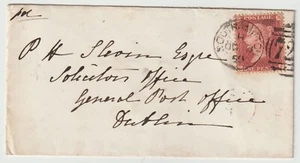 P H Slevin Esqre
Solicitors Office
General Post Office
Dublin
72